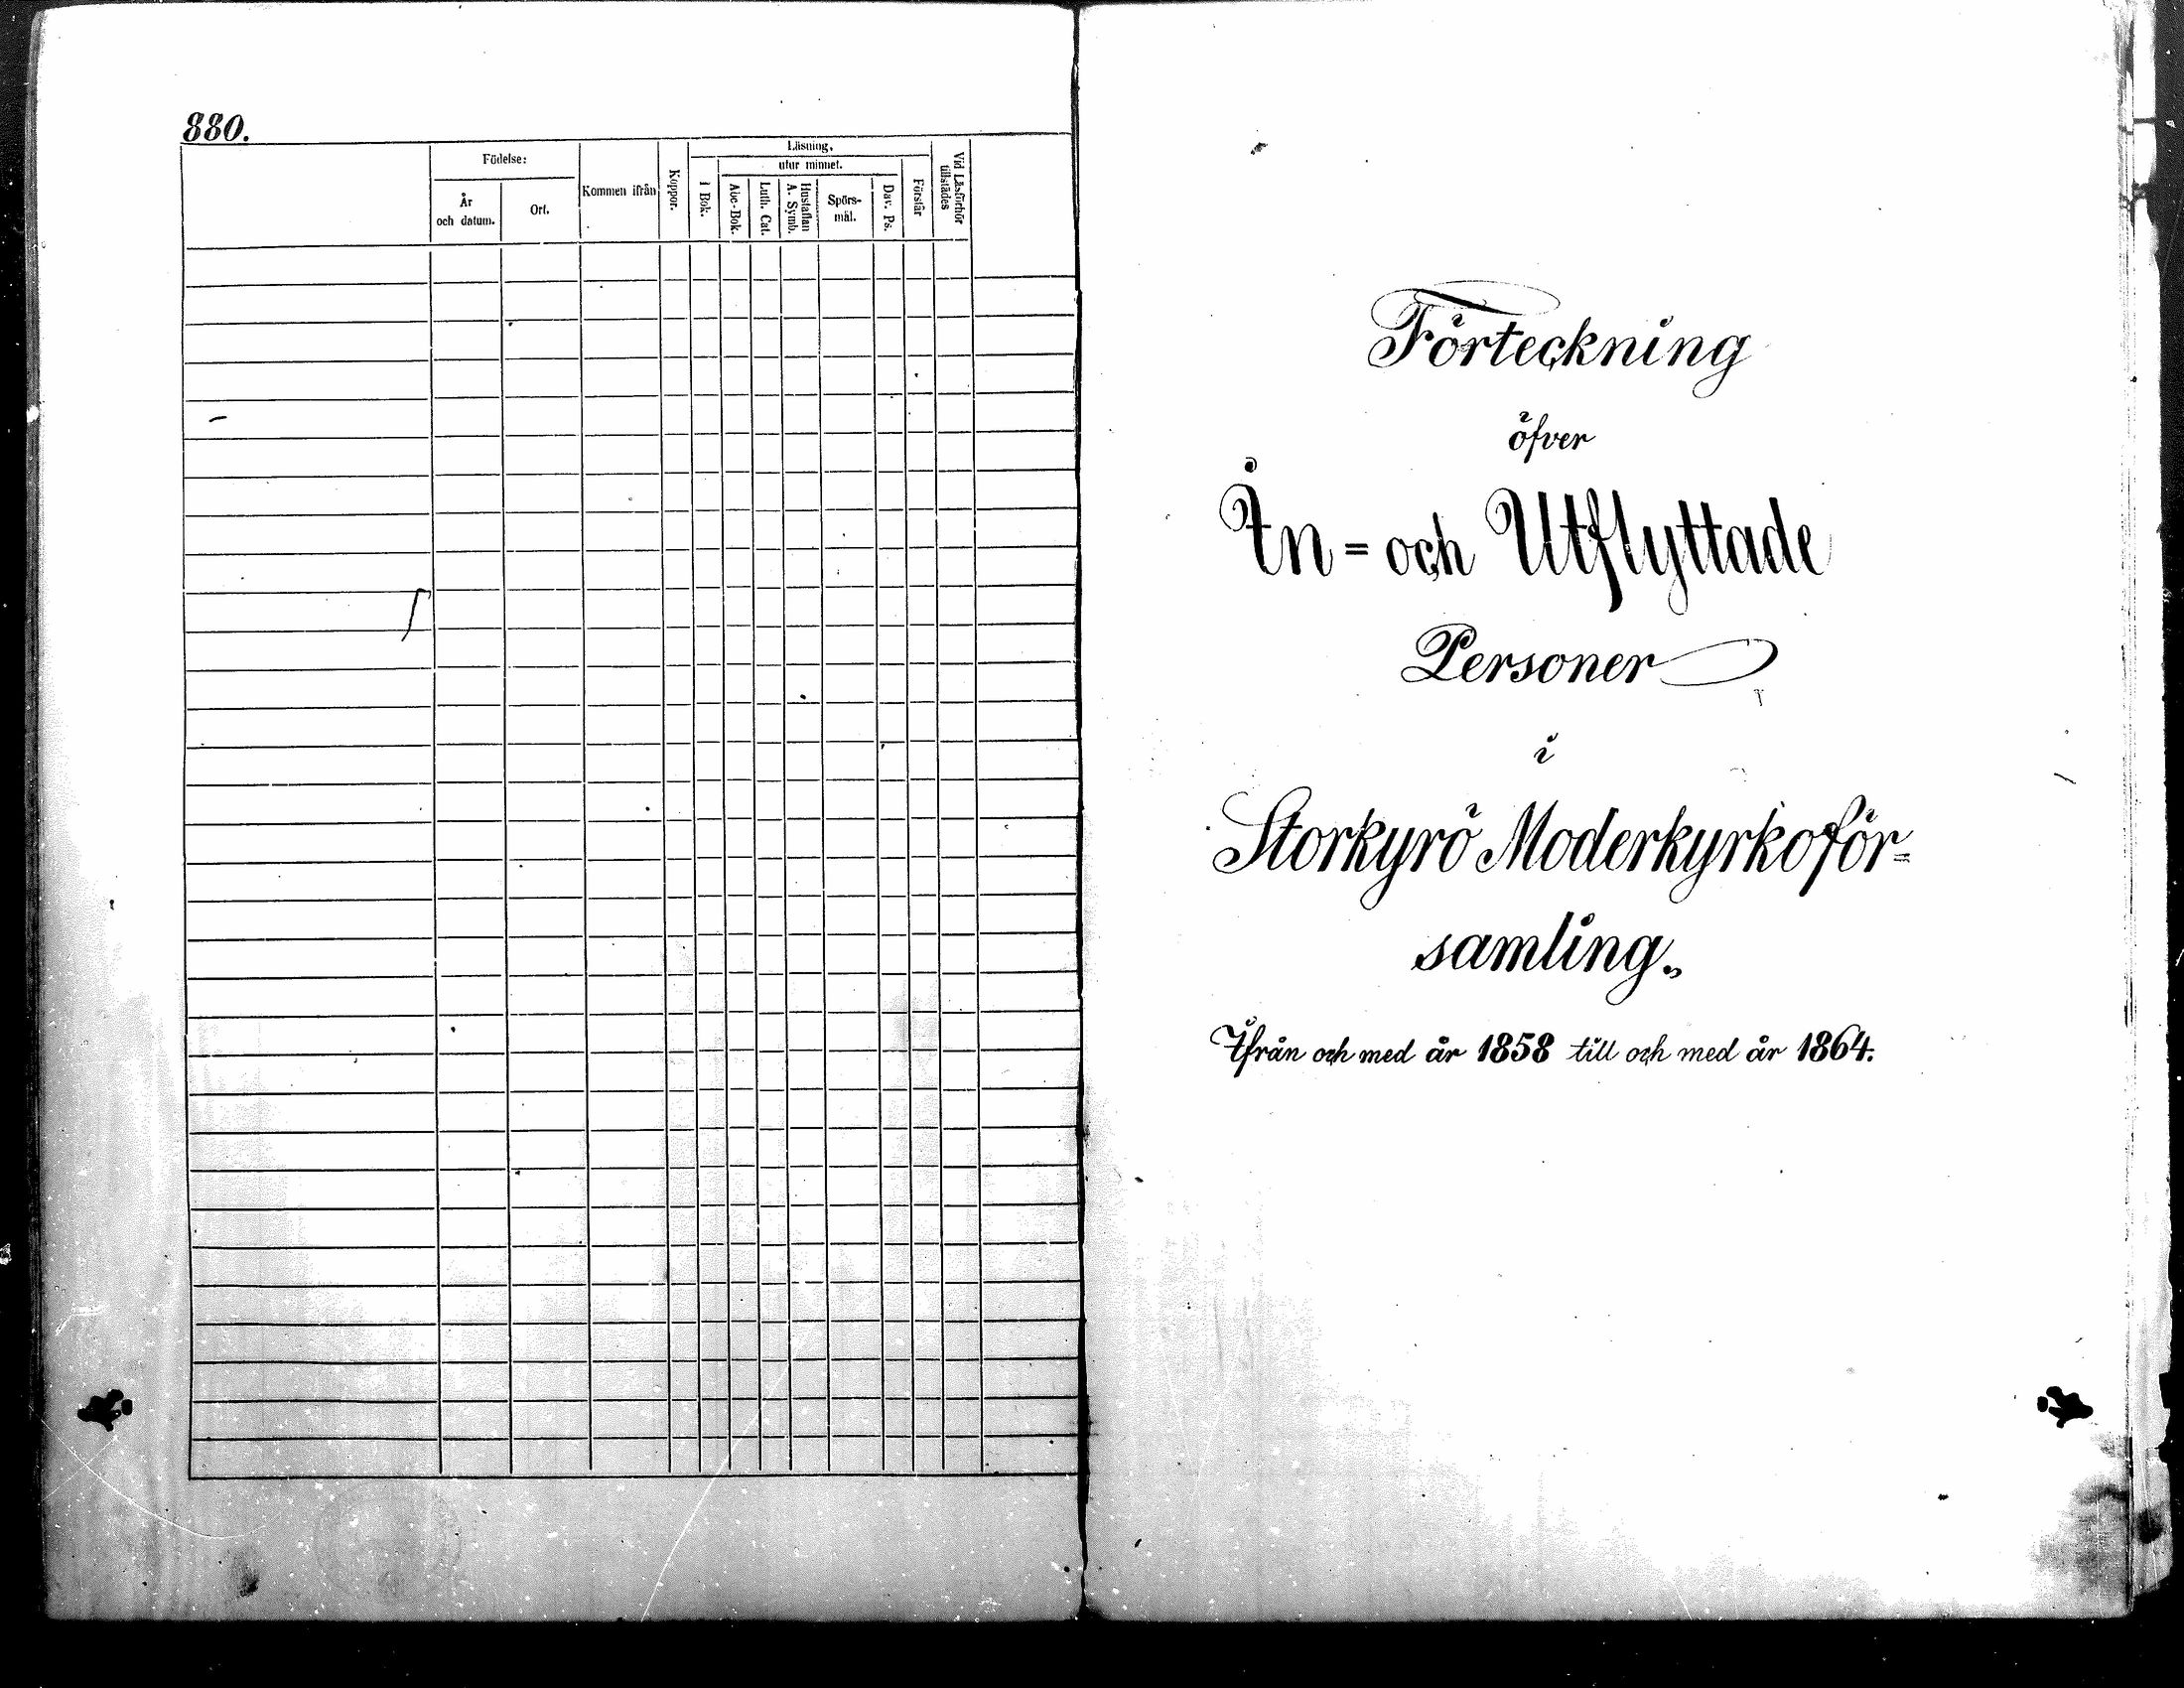 880.
Födelse:
År
och datum.
Ort.
Kommen ifrån
Koppor.
Läsning,
utur minnet.
i Bok.
Abc-Bok.
Luth. Cat.
Hustaflan
A. Symb.
Spörs-
mål.
Dav. Ps.
Förstår
Vid Läsförhör
tillstädes
Förteckning
öfver
In = och Utflyttade
Personer
i
Storkyrö Moderkyrkoför=
samling.
Ifrån och med år 1858 till och med år 1864.